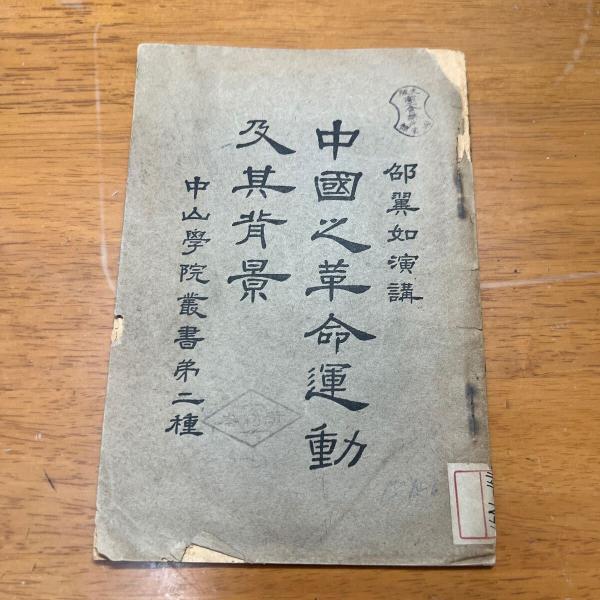 邵翼如演講
中國之革命運動
及其背景
中山學院叢書第二種